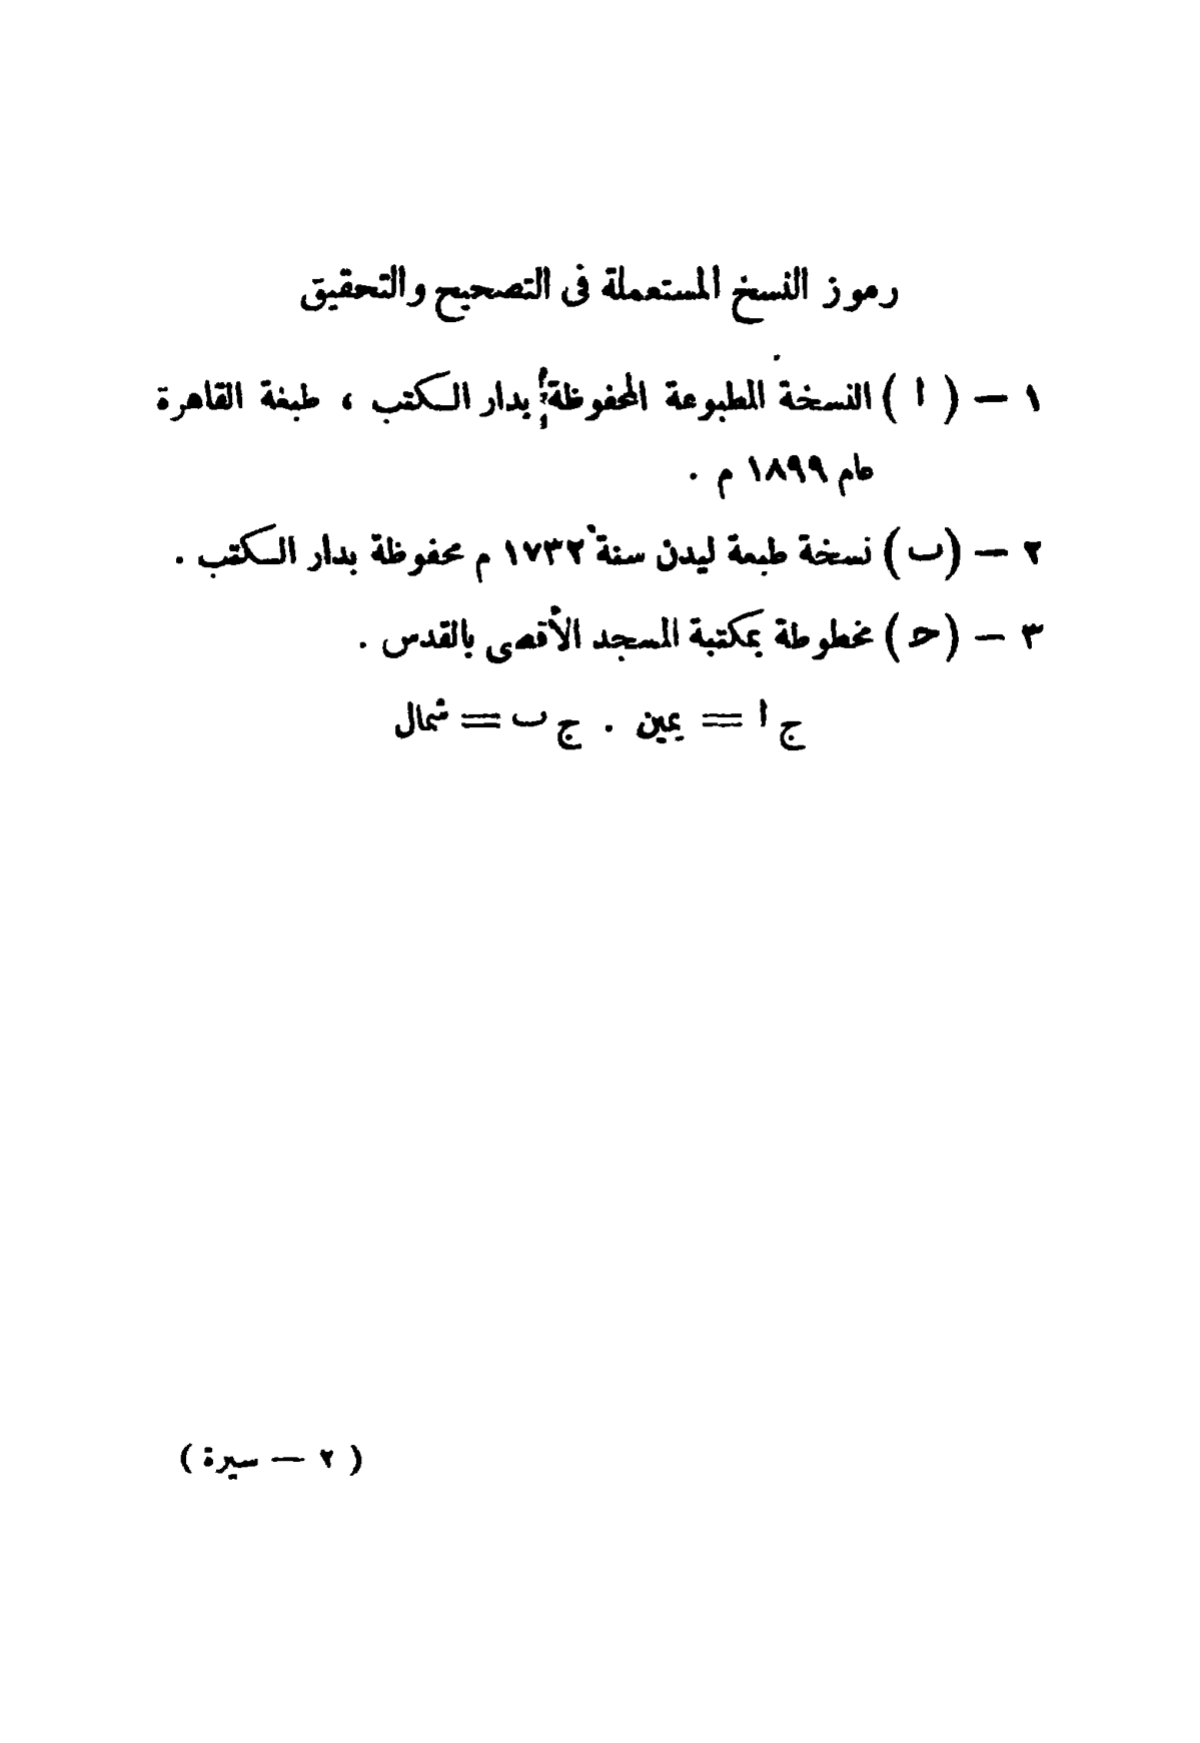 رموز النسخ المستعملة فى التصحيح والتحقيق
١ — ( ا ) النسخة المطبوعة المحفوظة بدار الكتب ، طبعة القاهرة
عام ١٨٩٩ م .
٢ — (ب) نسخة طبعة ليدن سنة ١٧٣٢ م محفوظة بدار الكتب .
٣ — (ح) مخطوطة بمكتبة المسجد الأقصى بالقدس .
ج ا = يمين . ج ب = شمال
( ٢ — سيرة )